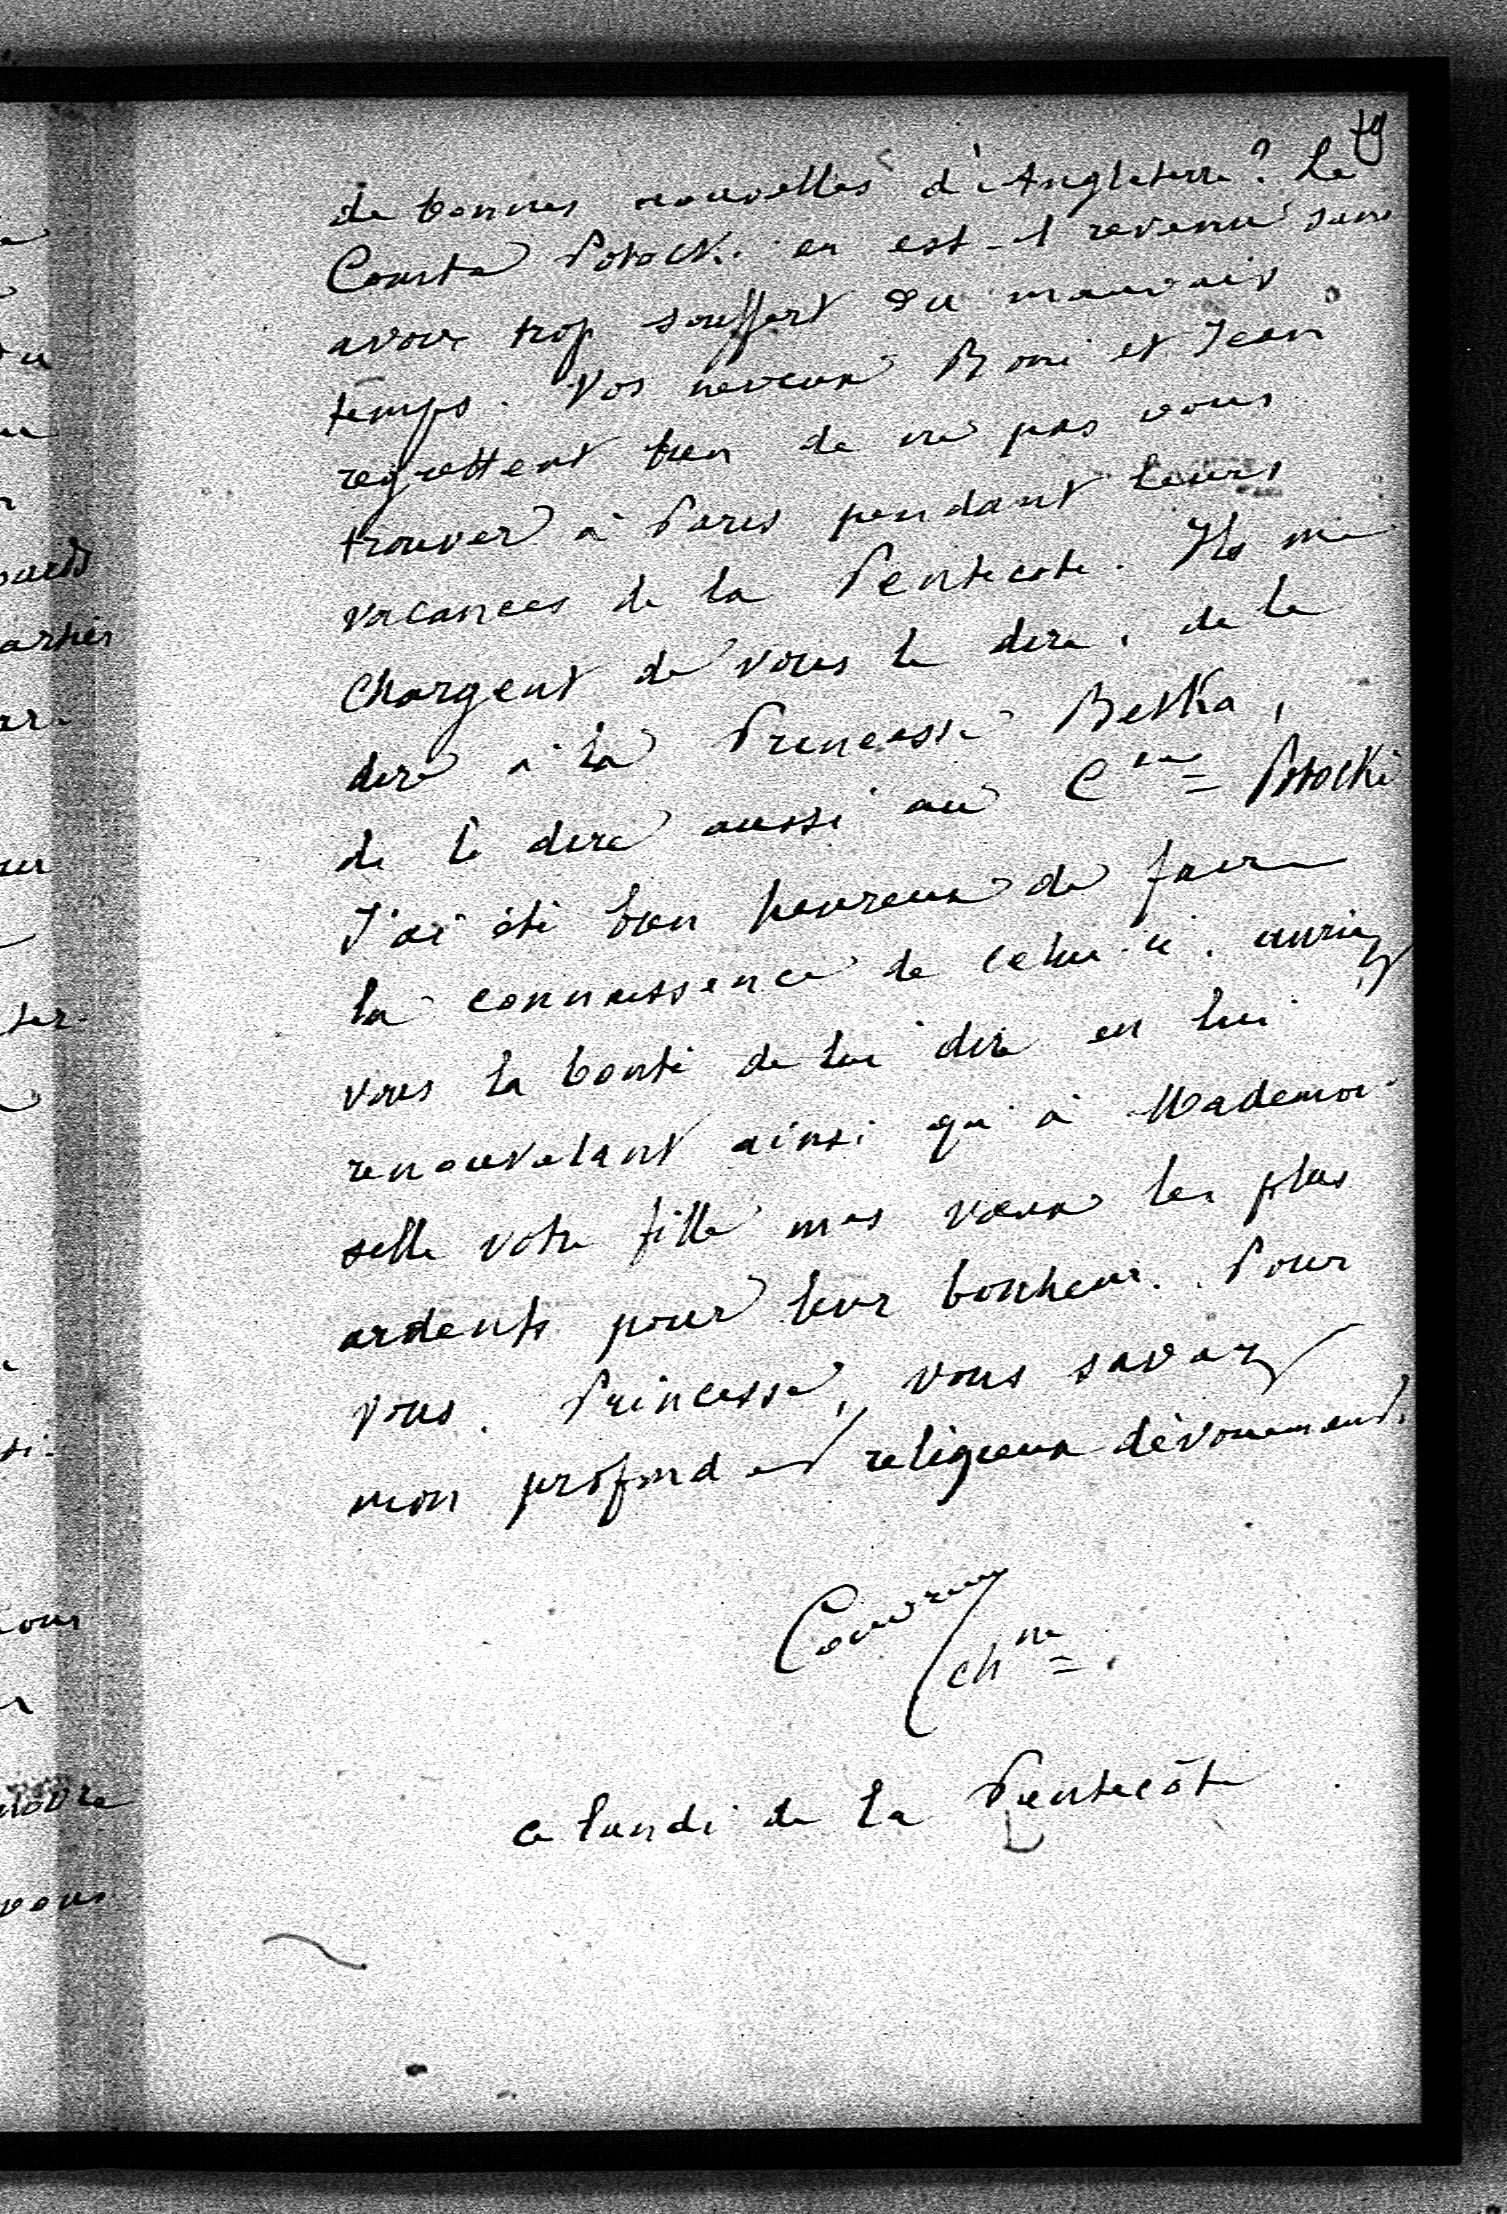 79
de bonnes nouvelles d'Angleterre? Le
Comte Potocki en est-il revenu sans
avoir trop souffert du mauvais
temps. Vos neveux Boni et Jean
regrettent bien de ne pas vous
trouver à Paris pendant leurs
vacances de la Pentecote. Ils me
chargent de vous le dire, de le
dire à la Princesse Betka,
de le dire aussi au Cte Potocki
J'ai été bien heureux de faire
la connaissance de celui-ci. auriez
vous la bonté de lui dire en lui
renouvelant ainsi qu'à Mademoi-
selle votre fille mes vœux les plus
ardents pour leur bonheur. Pour
vous, Princesse, vous savez
mon profond et religieux dévouement.
ch ne
ce lundi de la Pentecôte